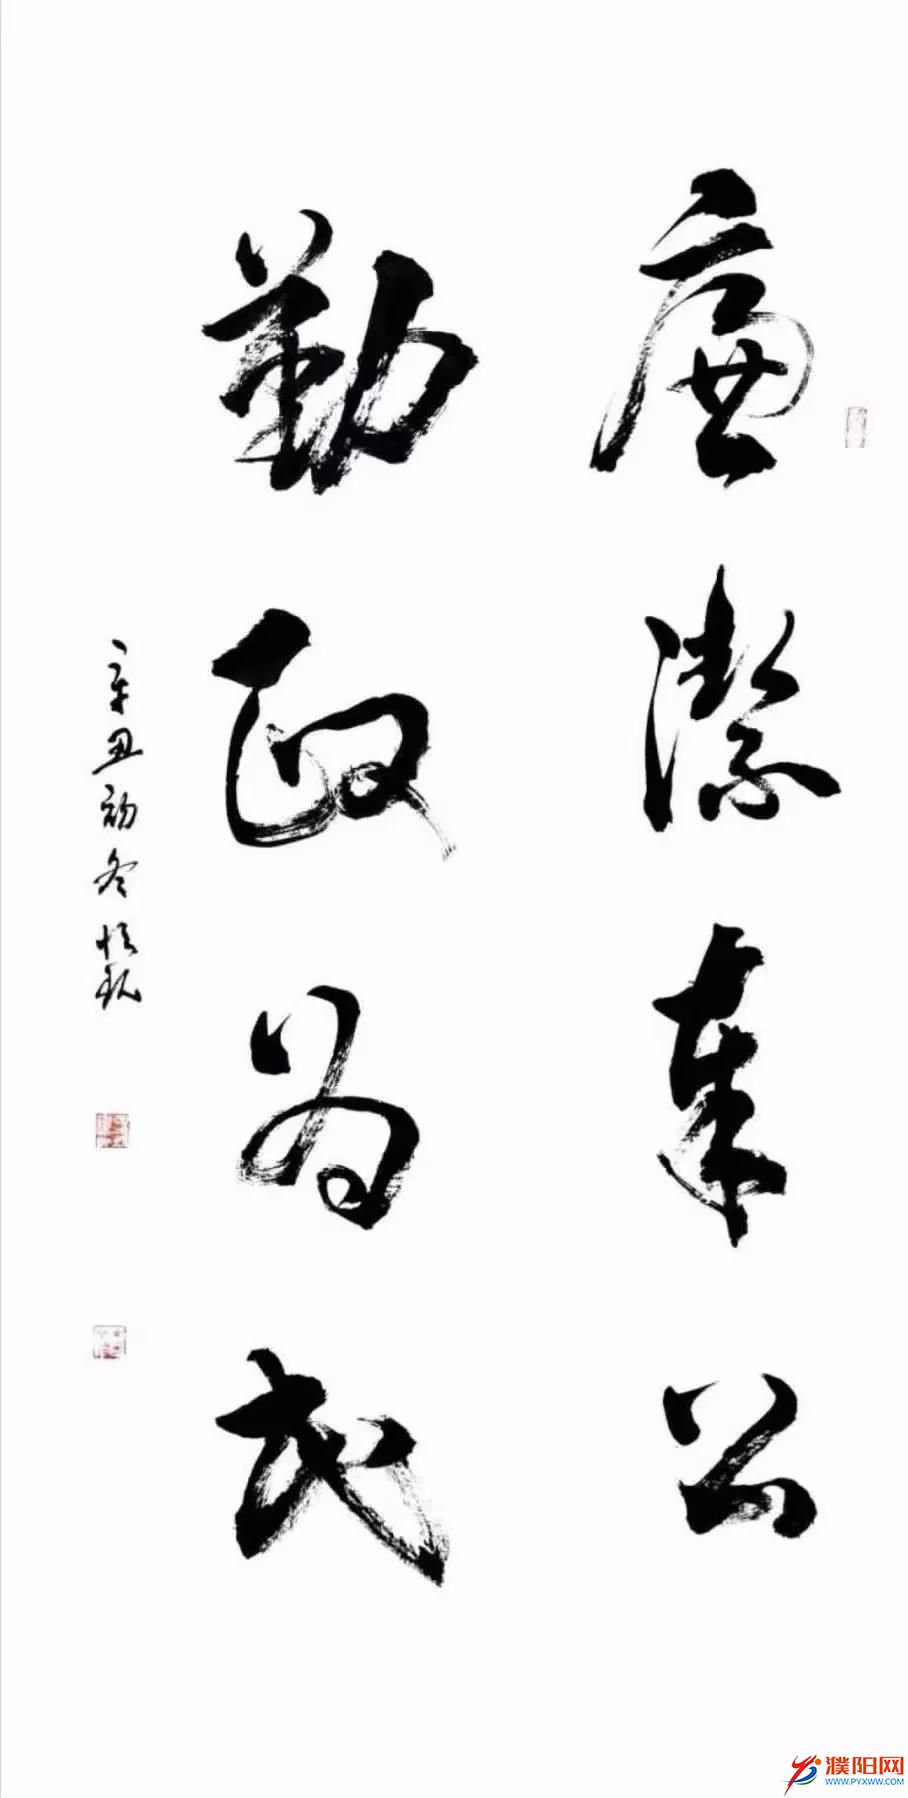 廉潔奉公
勤政为民
辛丑初冬
濮阳网
WWW.PYXWW.COM